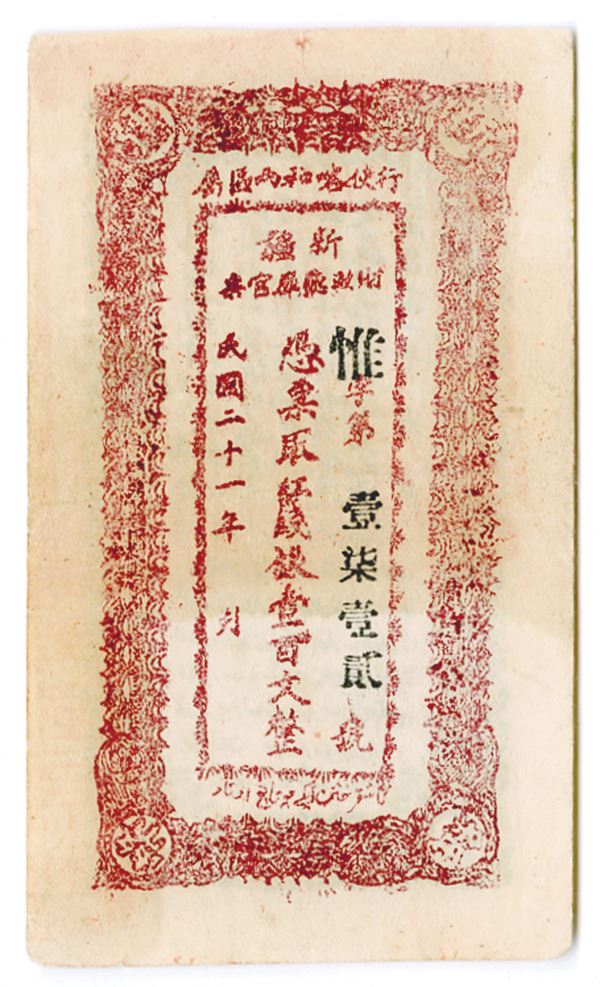 行使喀和兩區
新疆
財政廳庫官票
惟字第壹柒壹貳號
憑票取紅錢銀壹百文整
民國二十一年 月